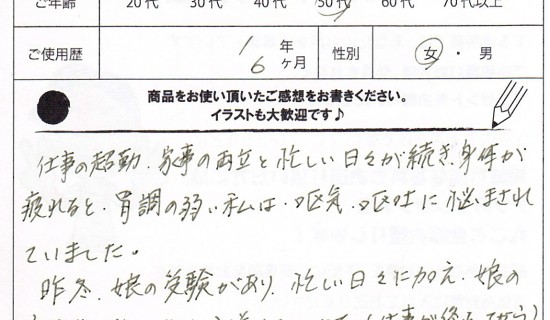 ご年齢 20代 30代 40代 50代 60代 70代以上
ご使用歴 1年6ヶ月 性別 女・男
商品をお使い頂いたご感想をお書きください。
イラストも大歓迎です♪
仕事の超勤、家事の両立と忙しい日々が続き、身体が
疲れると、胃調の弱い私は、嘔気、嘔吐に悩まされ
ていました。
昨冬、娘の受験があり、忙しい日々に加え、娘の